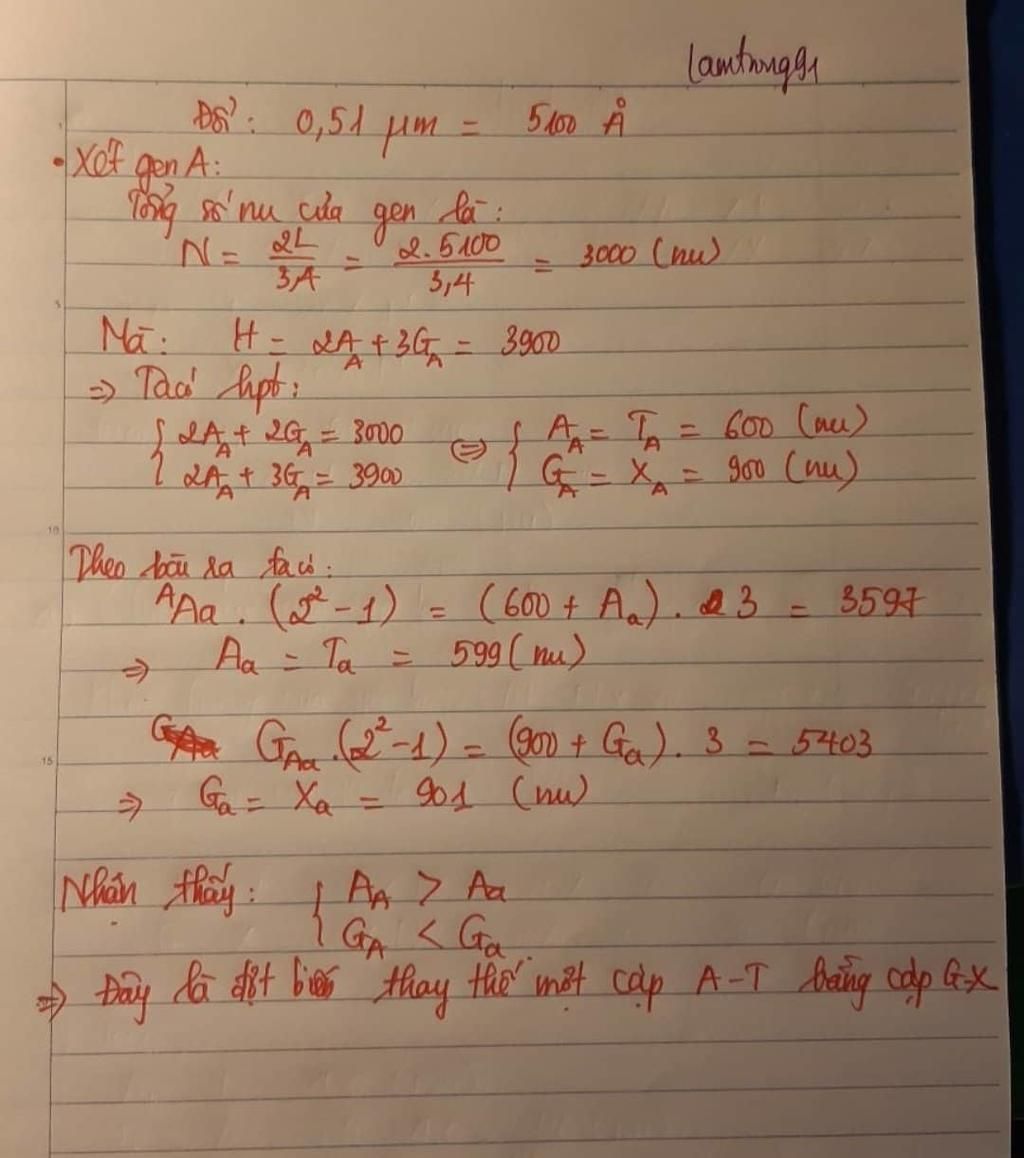 lamtrung91
Đổi: 0,51 µm = 5100 Å
• Xét gen A:
Tổng số nu của gen là:
N = 2L/3,4 = 2.5100/3,4 = 3000 (nu)
Mà: H = 2A_A + 3G_A = 3900
⇒ Ta có hpt:
{ 2A_A + 2G_A = 3000 ⇔ { A_A = T_A = 600 (nu)
{ 2A_A + 3G_A = 3900 { G_A = X_A = 900 (nu)
Theo bài ra ta có:
A_Aa . (2² - 1) = (600 + A_a) . 3 = 3597
⇒ A_a = T_a = 599 (nu)
G_Aa . (2² - 1) = (900 + G_a) . 3 = 5403
⇒ G_a = X_a = 901 (nu)
Nhận thấy: { A_A > A_a
{ G_A < G_a
⇒ Đây là đột biến thay thế một cặp A-T bằng cặp G-X